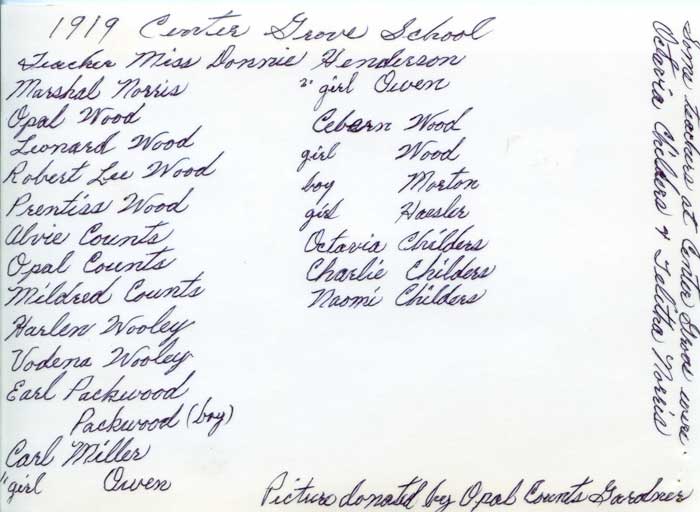 1919 Center Grove School
Teacher Miss Donnie Henderson
Marshal Norris
Opal Wood
Leonard Wood
Robert Lee Wood
Prentiss Wood
Alvie Counts
Opal Counts
Mildred Counts
Harlen Wooley
Vodena Wooley
Earl Packwood
Packwood (boy)
Carl Miller
"girl Owen
2" girl Owen
Cebern Wood
girl Wood
boy Morton
girl Haesler
Octavia Childers
Charlie Childers
Naomi Childers
Picture donated by Opal Counts Gardner
Some teachers at Center Grove were.
Octavia Childers & Telitha Norris